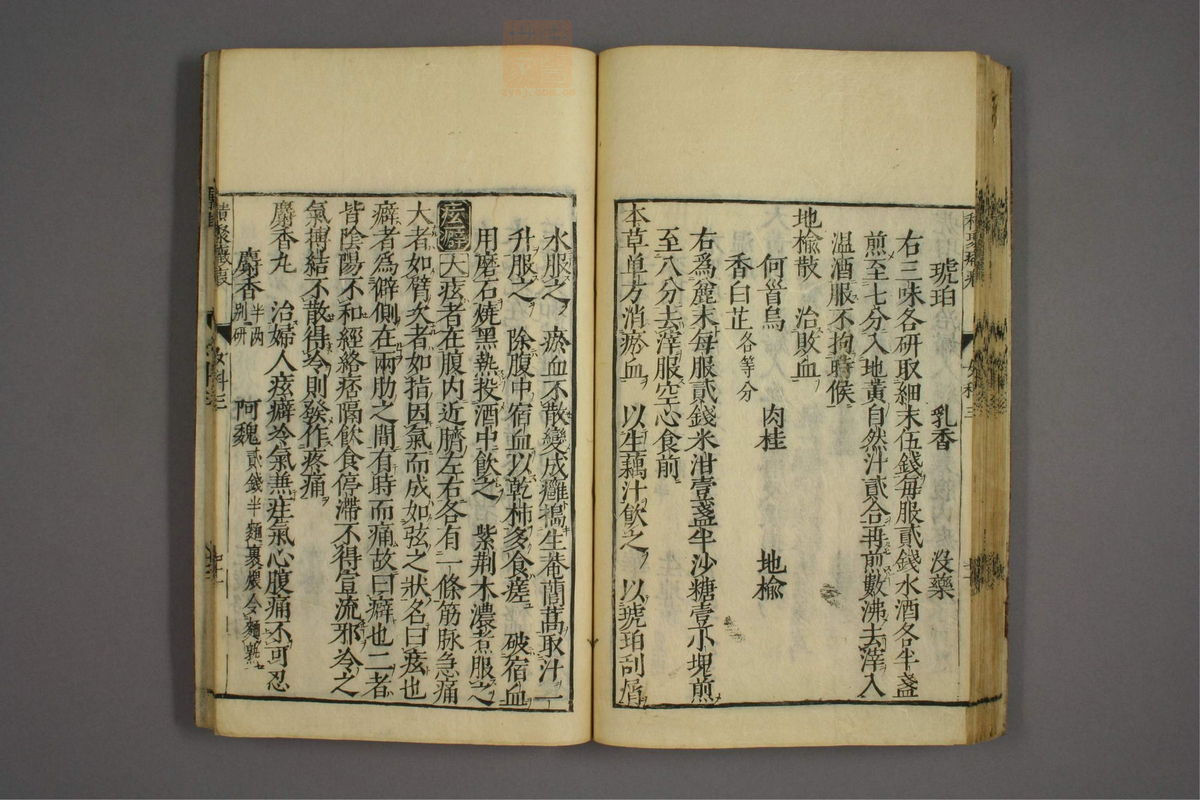 琥珀 乳香 沒藥
右三味各研取細末伍錢每服貳錢水酒各半盞
煎至七分入地黃自然汁貳合再煎數沸去滓入
溫酒服不拘時候
地楡散 治敗血
何首烏 肉桂 地楡
香白芷各等分
右爲麁末每服貳錢米泔壹盞半沙糖壹小塊煎
至八分去滓服空心食前
本草单方消瘀血 以生藕汁飮之 以琥珀刮屑
水服之 瘀血不散變成癰擣生菴䕡蒿取汁一
升服之 除腹中宿血以乾柿多食瘥 破宿血
用磨石燒黑熱投酒中飮之 紫荆木濃煮服之
痃癖 大痃者在腹内近臍左右各有一條筋脉急痛
大者如臂次者如指因氣而成如弦之狀名曰痃也
癖者爲僻側在兩肋之間有時而痛故曰癖也二者
皆陰陽不和經絡痞隔飮食停滯不得宣流邪冷之
氣搏結不散得冷則發作疼痛
麝香丸 治婦人痃癖冷氣兼疰氣心腹痛不可忍
麝香半两別研 阿魏貳錢半麵裹煨令麵熟
女科三